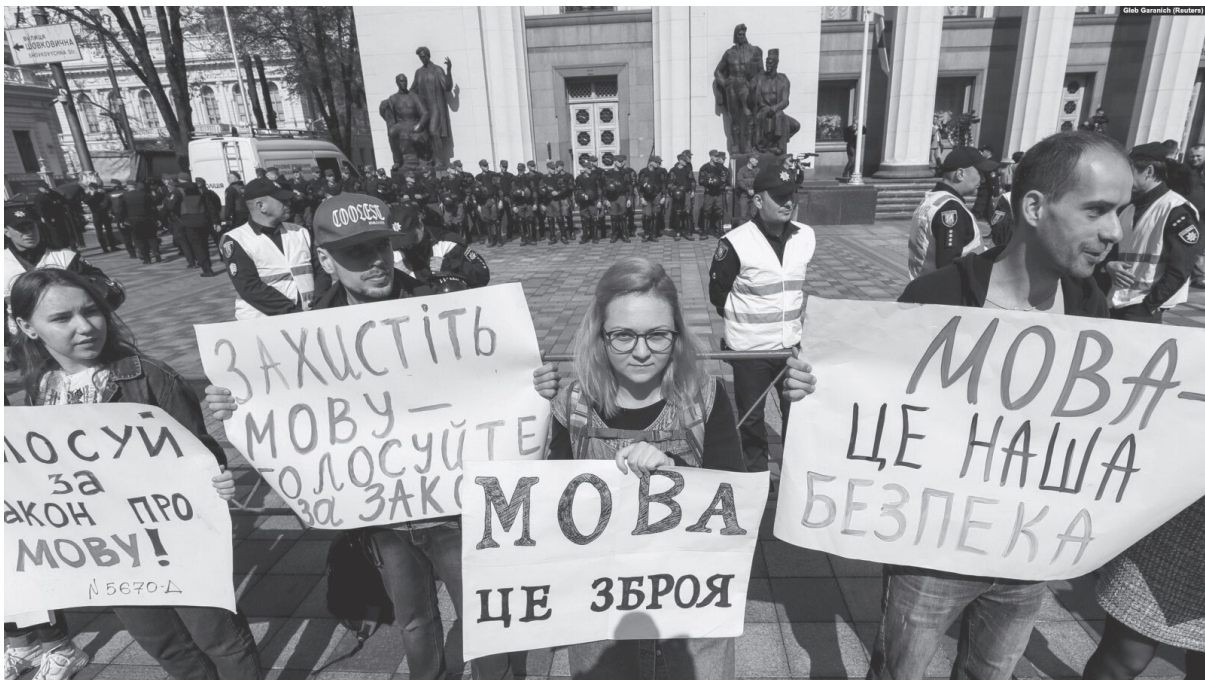 Gleb Garanich (Reuters)
вулиця
ШОВКОВИЧНА
COOLEST
ЛОСУЙ
за
АКОН ПРО
МОВУ!
N5670-Д
ЗАХИСТІТЬ
МОВУ —
ГОЛОСУЙТЕ
за ЗАКО
МОВА
ЦЕ ЗБРОЯ
МОВА-
ЦЕ НАША
БЕЗПЕКА